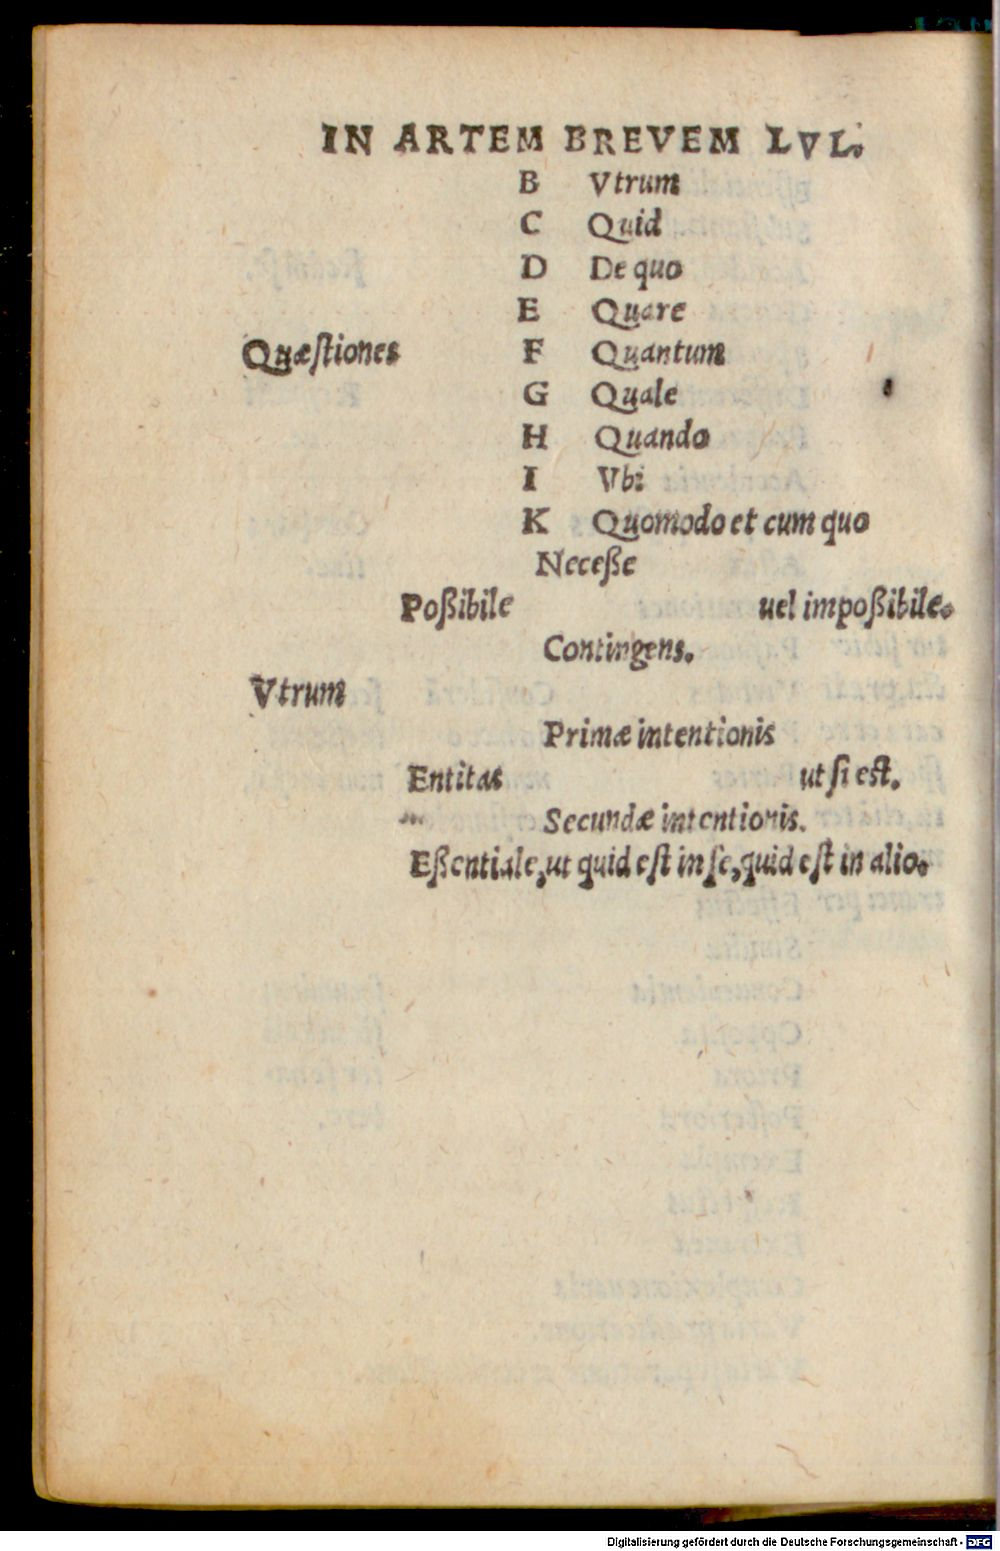 IN ARTEM BREVEM LVL.
B Vtrum
C Quid
D De quo
E Quare
Quæſtiones F Quantum
G Quale
H Quando
I Vbi
K Quomodo et cum quo
Neceße
Poßibile uel impoßibile.
Contingens.
Vtrum
Primæ intentionis
Entitas ut ſi eſt.
Secundæ intentionis.
Eßentiale, ut quid eſt in ſe, quid eſt in alio.
Digitalisierung gefördert durch die Deutsche Forschungsgemeinschaft - DFG